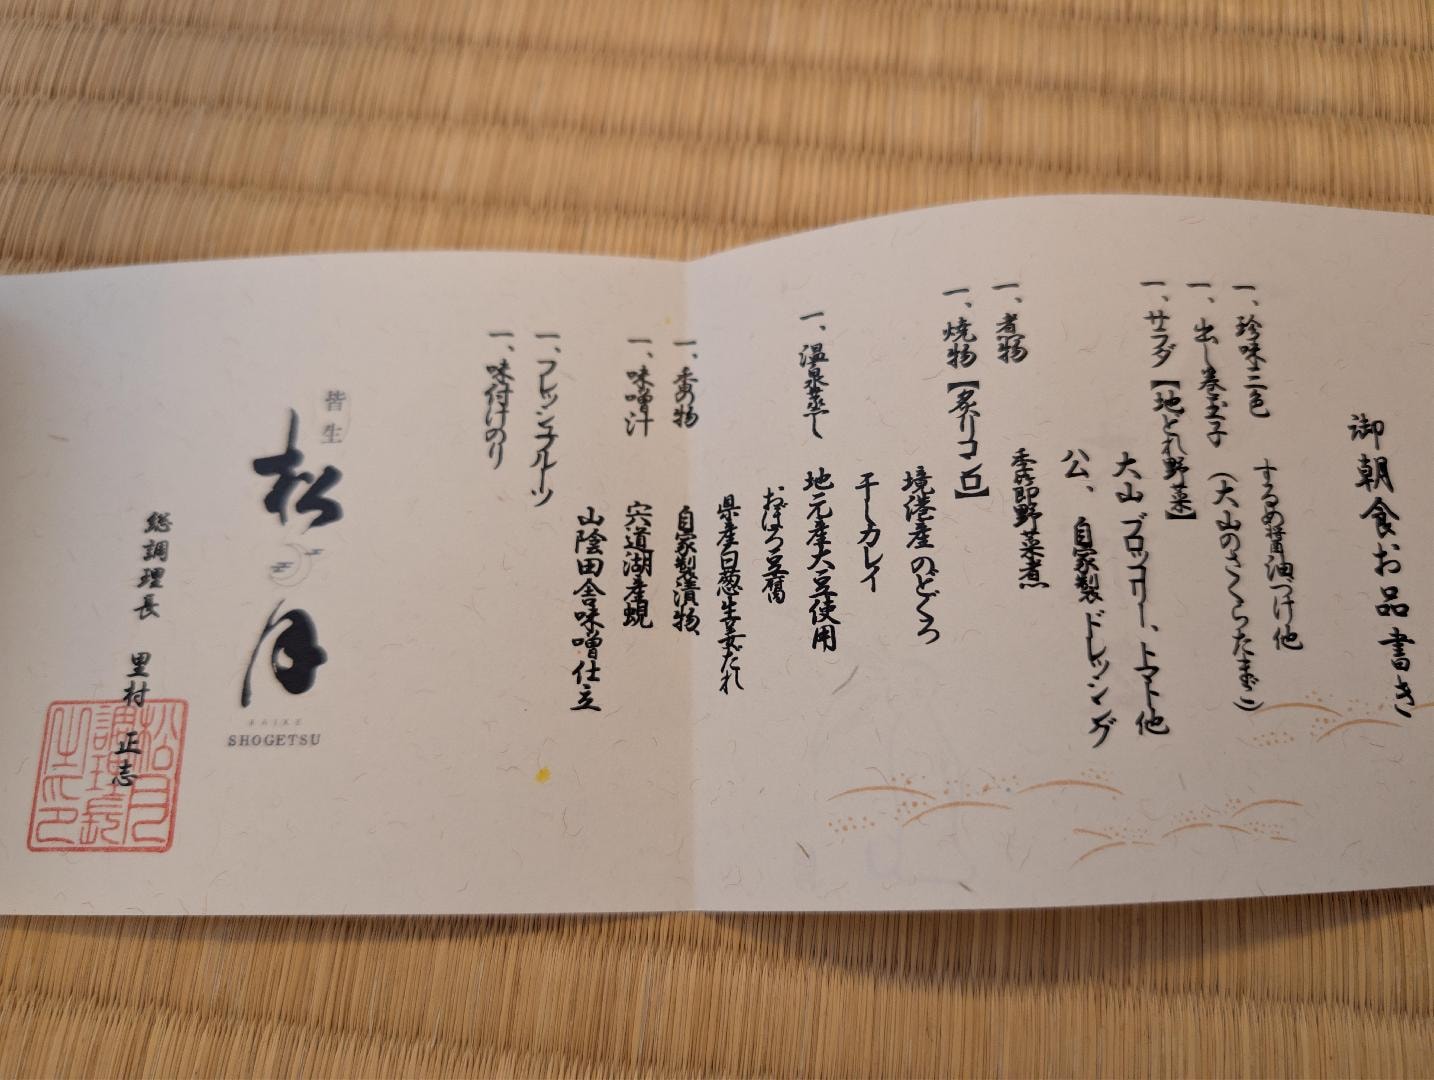 御朝食お品書き
一、珍味二色
するめ醤油つけ他
一、出し巻玉子
（大山のさくらたまご）
一、サラダ【地どれ野菜】
大山ブロッコリー、トマト他
公、自家製ドレッシング
一、煮物
季節野菜煮
一、焼物【炙りコンロ】
境港産のどぐろ
干しカレイ
一、温泉蒸し
地元産大豆使用
おぼろ豆腐
県産白葱生姜だれ
一、香の物
自家製漬物
一、味噌汁
宍道湖産蜆
山陰田舎味噌仕立
一、フレッシュフルーツ
一、味付けのり
皆生
松月
KAIKE
SHOGETSU
総調理長 里村 正志
松月
調理長
之印